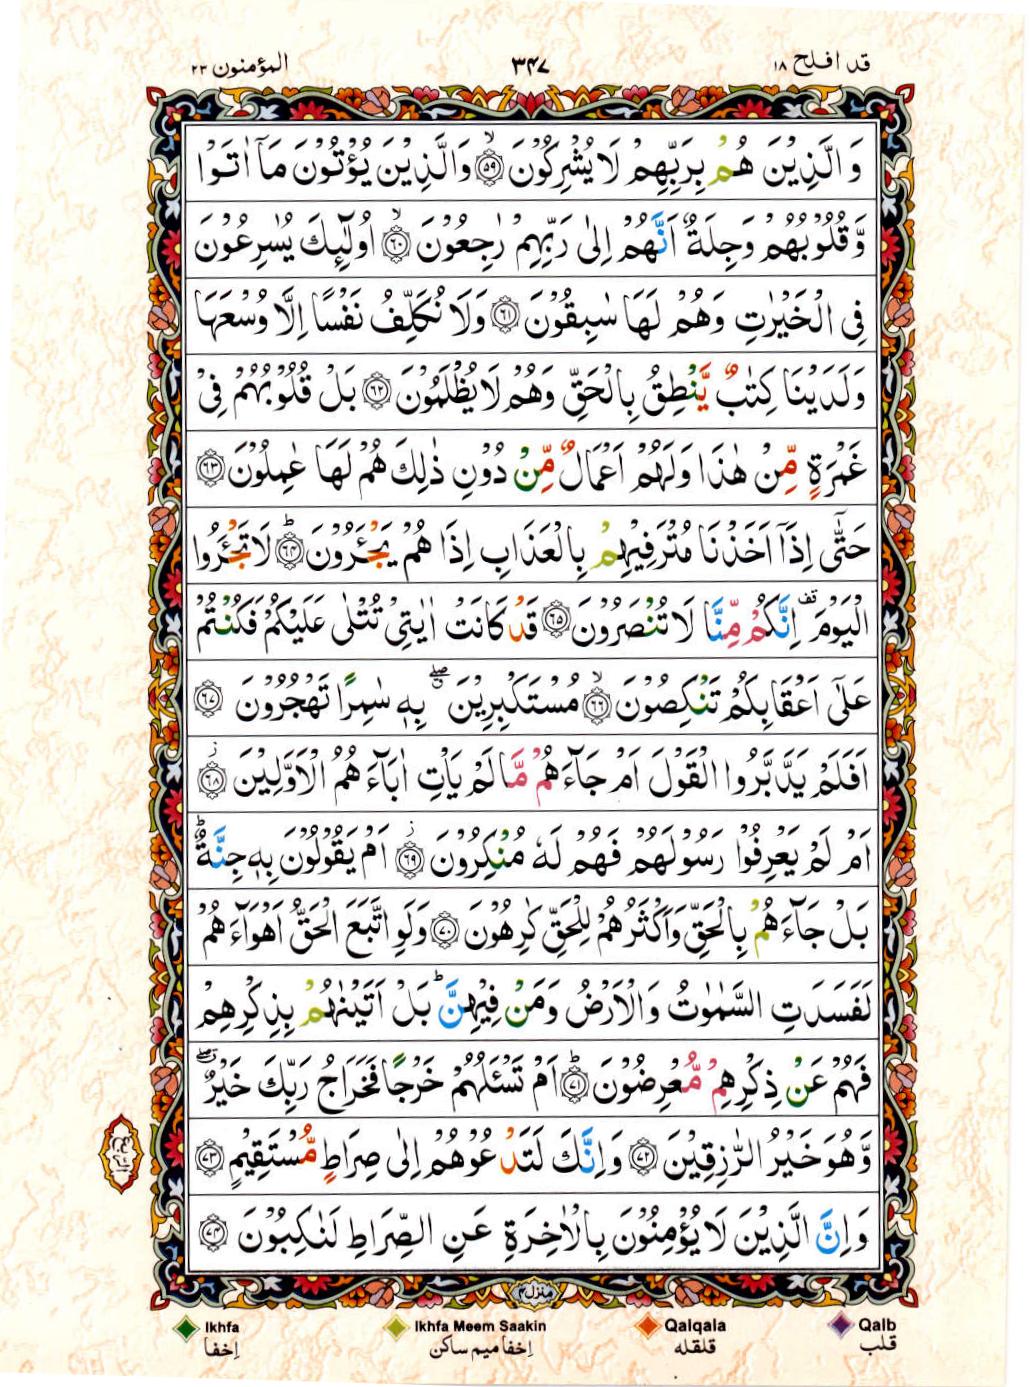 قد افلح ۱۸
۳۴۷
المؤمنون ۲۳
وَالَّذِيْنَ هُمْ بِرَبِّهِمْ لَا يُشْرِكُوْنَ ۙ‏﴿۵۹﴾ وَالَّذِيْنَ يُؤْتُوْنَ مَاۤ اٰتَوْا
وَّ قُلُوْبُهُمْ وَجِلَةٌ اَنَّهُمْ اِلٰى رَبِّهِمْ رٰجِعُوْنَ ۙ‏﴿۶۰﴾ اُولٰٓئِكَ يُسٰرِعُوْنَ
فِى الْخَيْرٰتِ وَهُمْ لَهَا سٰبِقُوْنَ ﴿۶۱﴾ وَلَا نُكَلِّفُ نَفْسًا اِلَّا وُسْعَهَا
وَلَدَيْنَا كِتٰبٌ يَّنْطِقُ بِالْحَقِّ وَهُمْ لَا يُظْلَمُوْنَ ﴿۶۲﴾ بَلْ قُلُوْبُهُمْ فِىْ
غَمْرَةٍ مِّنْ هٰذَا وَلَهُمْ اَعْمَالٌ مِّنْ دُوْنِ ذٰلِكَ هُمْ لَهَا عٰمِلُوْنَ ﴿۶۳﴾
حَتّٰٓى اِذَاۤ اَخَذْنَا مُتْرَفِيْهِمْ بِالْعَذَابِ اِذَا هُمْ يَجْئَرُوْنَ ؕ‏﴿۶۴﴾ لَا تَجْئَرُوا
الْيَوْمَ ۟قف اِنَّكُمْ مِّنَّا لَا تُنْصَرُوْنَ ﴿۶۵﴾ قَدْ كَانَتْ اٰيٰتِىْ تُتْلٰى عَلَيْكُمْ فَكُنْتُمْ
عَلٰٓى اَعْقَابِكُمْ تَنْكِصُوْنَ ۙ‏﴿۶۶﴾ مُسْتَكْبِرِيْنَ ۖۗ بِهٖ سٰمِرًا تَهْجُرُوْنَ ﴿۶۷﴾
اَفَلَمْ يَدَّبَّرُوا الْقَوْلَ اَمْ جَآءَهُمْ مَّا لَمْ يَاْتِ اٰبَآءَهُمُ الْاَوَّلِيْنَ ز ﴿۶۸﴾
اَمْ لَمْ يَعْرِفُوْا رَسُوْلَهُمْ فَهُمْ لَهٗ مُنْكِرُوْنَ ز ﴿۶۹﴾ اَمْ يَقُوْلُوْنَ بِهٖ جِنَّةٌ ؕ
بَلْ جَآءَهُمْ بِالْحَقِّ وَاَكْثَرُهُمْ لِلْحَقِّ كٰرِهُوْنَ ﴿۷۰﴾ وَلَوِ اتَّبَعَ الْحَقُّ اَهْوَآءَهُمْ
لَفَسَدَتِ السَّمٰوٰتُ وَالْاَرْضُ وَمَنْ فِيْهِنَّ ؕ بَلْ اَتَيْنٰهُمْ بِذِكْرِهِمْ
فَهُمْ عَنْ ذِكْرِهِمْ مُّعْرِضُوْنَ ؕ‏﴿۷۱﴾ اَمْ تَسْئَلُهُمْ خَرْجًا فَخَرَاجُ رَبِّكَ خَيْرٌ ۖۗ
وَّهُوَ خَيْرُ الرّٰزِقِيْنَ ﴿۷۲﴾ وَاِنَّكَ لَتَدْعُوْهُمْ اِلٰى صِرَاطٍ مُّسْتَقِيْمٍ ﴿۷۳﴾
وَاِنَّ الَّذِيْنَ لَا يُؤْمِنُوْنَ بِالْاٰخِرَةِ عَنِ الصِّرَاطِ لَنٰكِبُوْنَ ﴿۷۴﴾
الربع
منزل ۴
Ikhfa
اِخفا
Ikhfa Meem Saakin
اِخفا میم ساکن
Qalqala
قلقله
Qalb
قلب